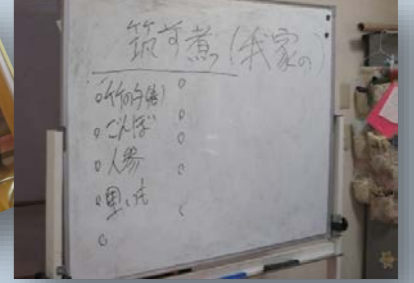 筑前煮(我家の)
○竹の子
○ごんぼ
○人参
○里いも